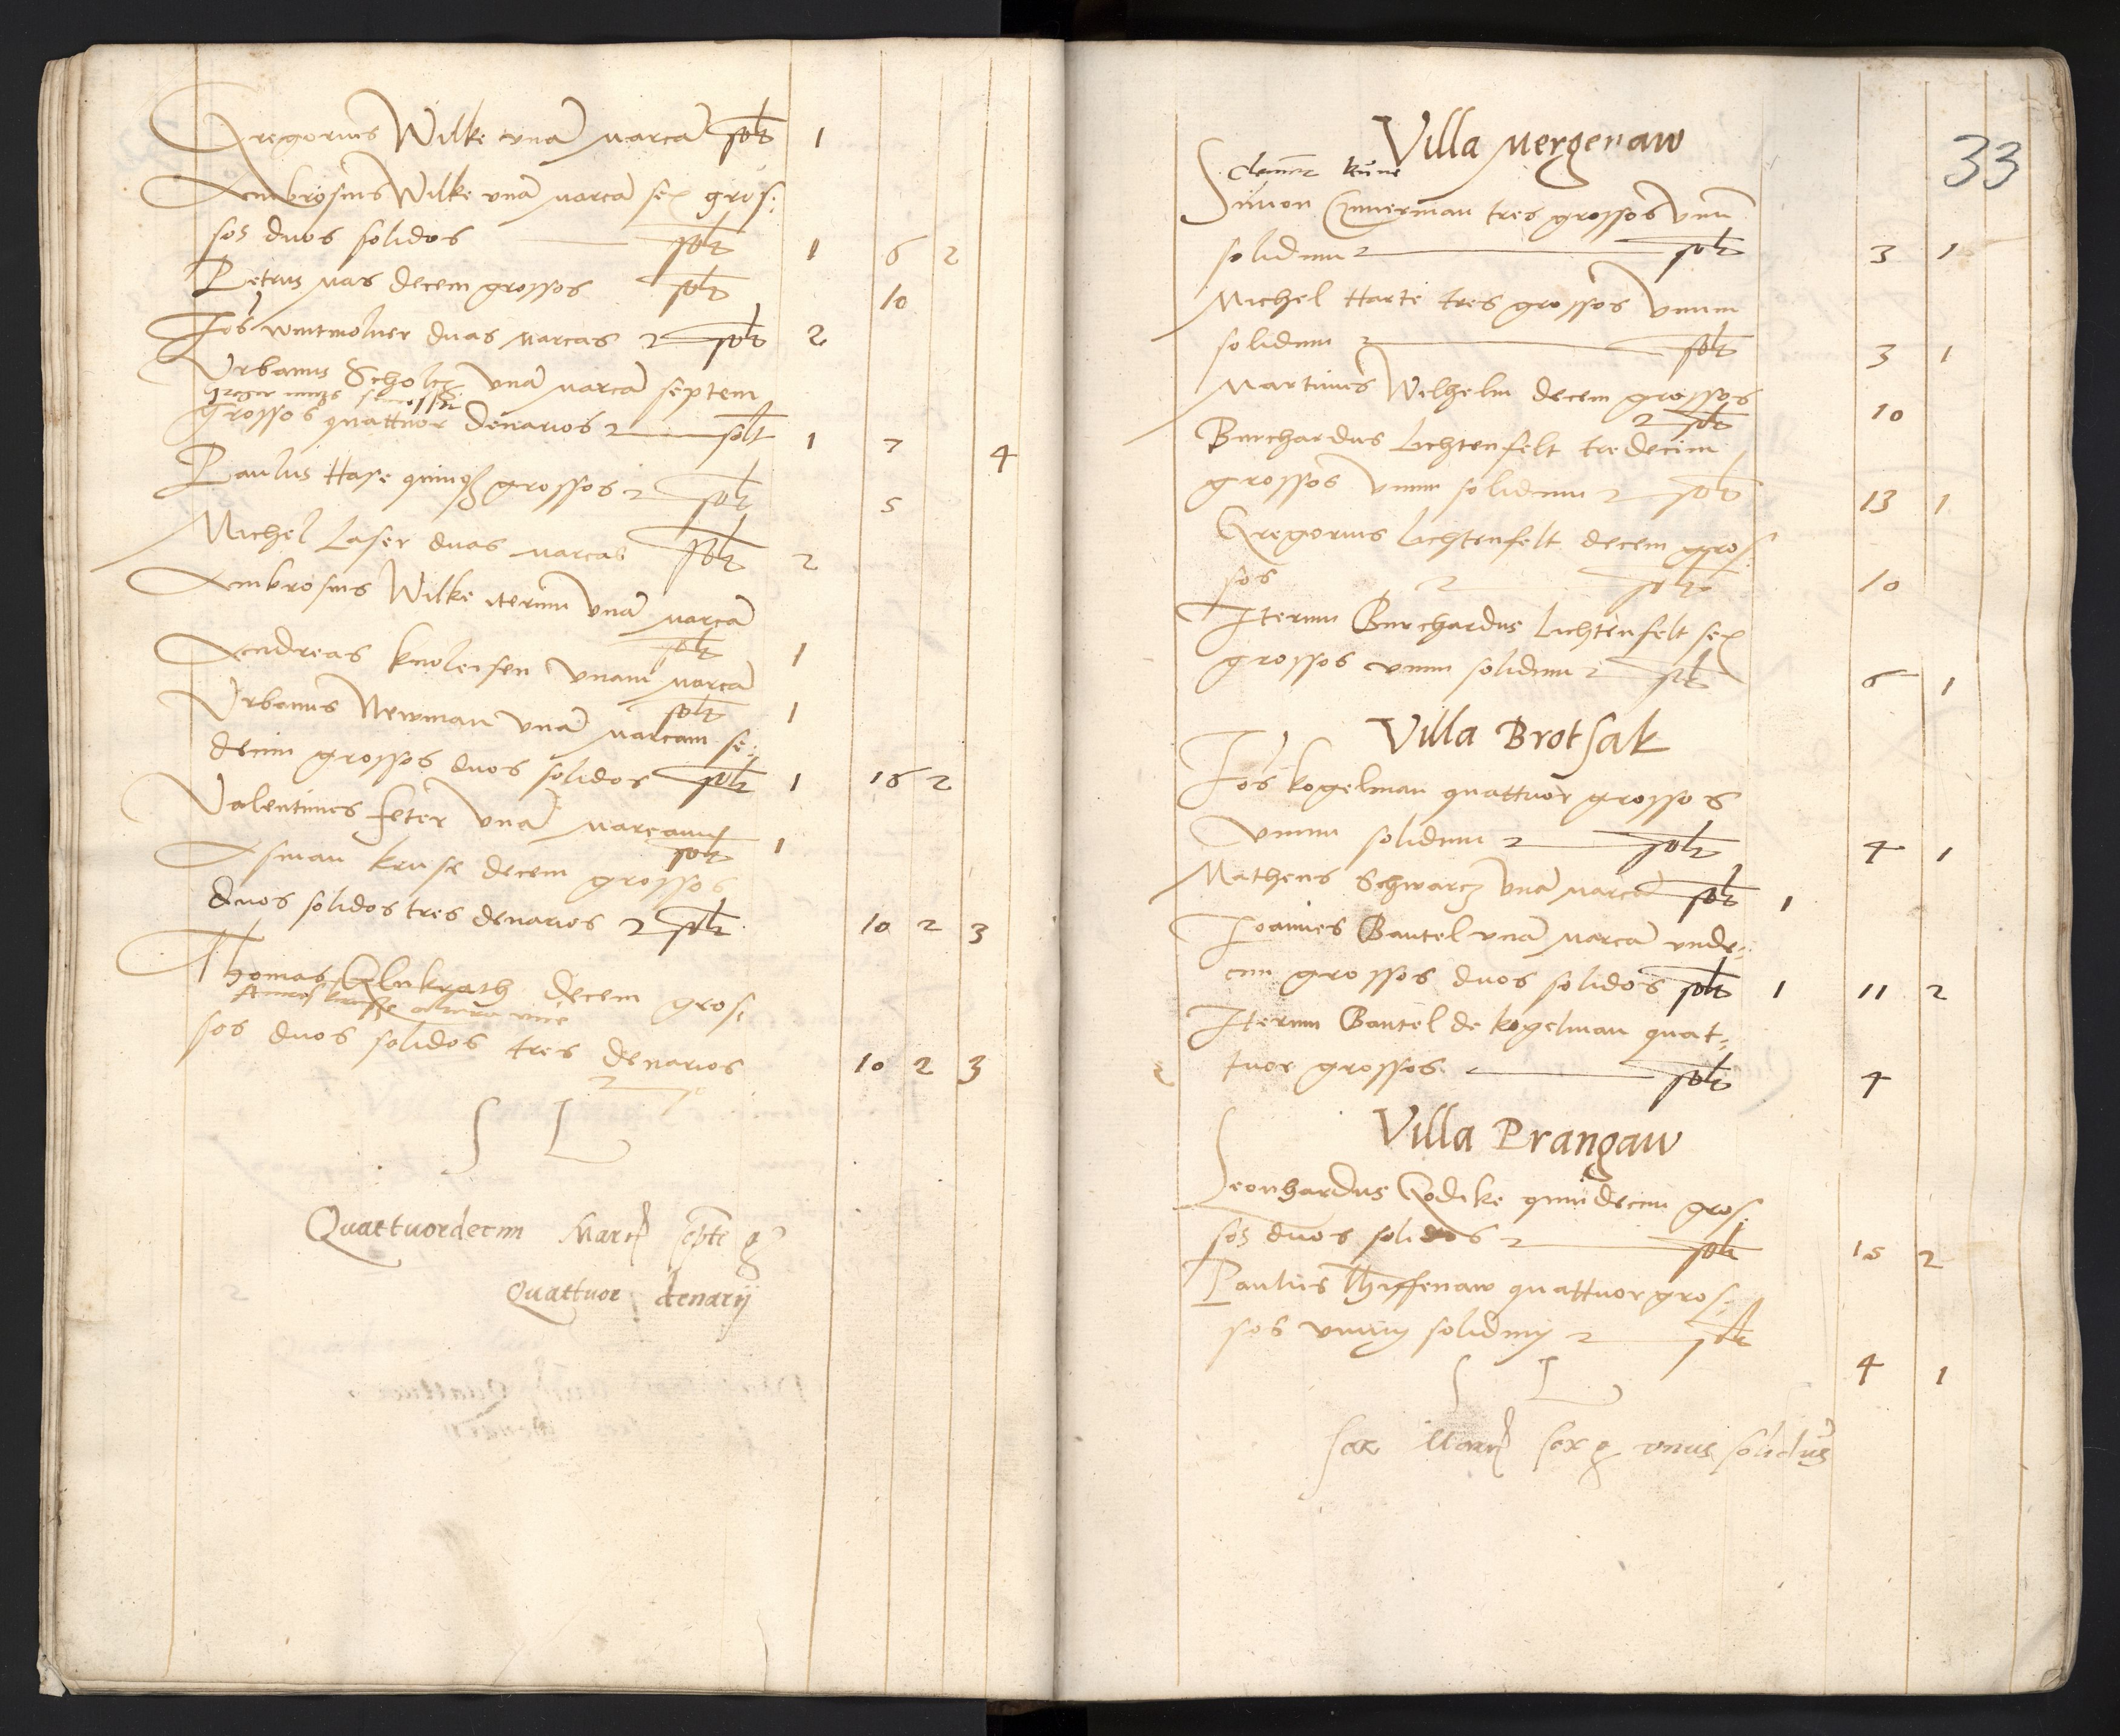 Gregorius Wilke unā marcā solt 1
Ambrosius Wilke unā marcā sex gros:
sos duos solidos solt 1 6 2
Petrus Mas decem grossos solt 10
Jos wintmolner duas marcas solt 2
Urbanus Scholcz unā marcā septem
grossos quattuor denarios solt 1 7 4
Paulus Hase quinqz grossos solt 5
Michel Laser duas marcas solt 2
Ambrosius Wilke iterum unā marcā
solt 1
Andreas knoleisen unam marcā
solt 1
Urbanus Newman unā marcam se:
decim grossos duos solidos solt 1 16 2
Valentinus feter unā marcam
solt 1
Asman kruse decem grossos
duos solidos tres denarios solt 10 2 3
Thomas decem gros:
sos duos solidos tres denarios 10 2 3
S L
Quattuordecim Marc septē g
Quattuor denarij
33
Villa Mergenaw
kune
Simon Czimerman tres grossos unū
solidum solt 3 1
Michel Harte tres grossos unum
solidum solt 3 1
Martinus Wilhelm decem grossos
solt 10
Burchardus Lichtenfelt tredecim
grossos unum solidum solt 13 1
Gregorius Lichtenfelt decem gros:
sos solt 10
Iterum Burchardus Lichtenfelt sex
grossos unum solidum solt 6 1
Villa Brotsak
Jos kogelman quattuor grossos
unum solidum solt 4 1
Matheus Schwarcz unā marcā solt 1
Joannes Bantel unā marcā unde:
cim grossos duos solidos solt 1 11 2
Iterum Bantel de kogelman quat:
tuor grossos solt 4
Villa Prangaw
Leonhardus Godike quindecim gros:
sos duos solidos solt 15 2
Paulus Thiffenaw quattuor gros:
sos unum solidum solt
4 1
S L
sex Marc sex g unus solidus